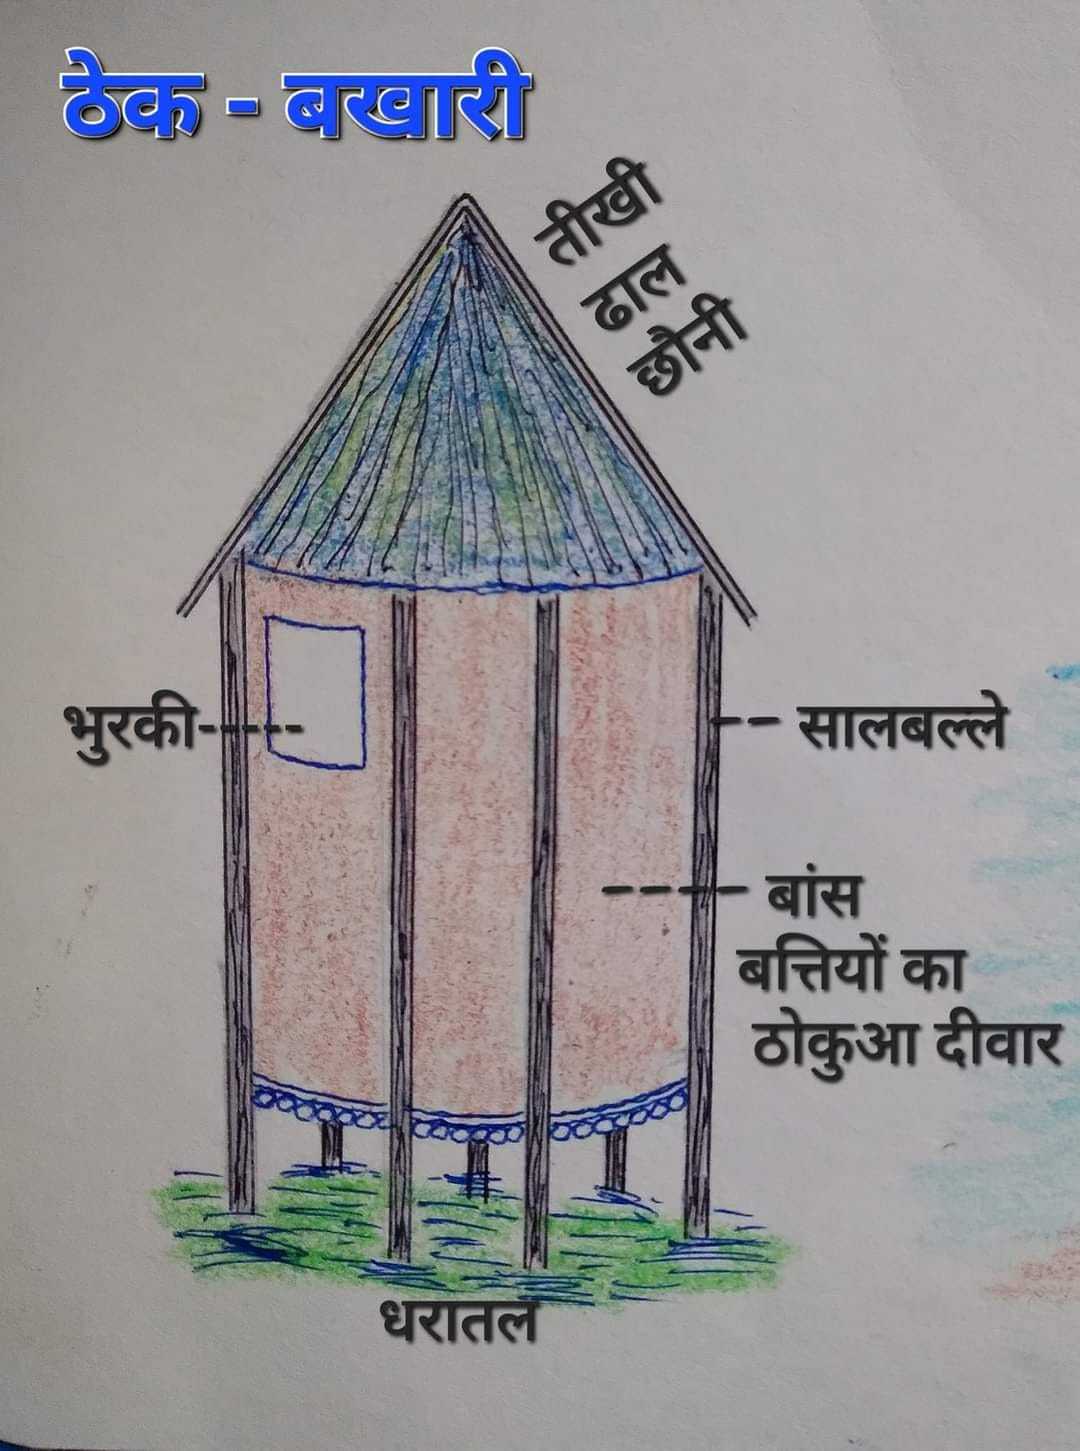 ठेक - बखारी
तीखी
ढाल
छौनी
भुरकी
सालबल्ले
बांस
बत्तियों का
ठोकुआ दीवार
धरातल